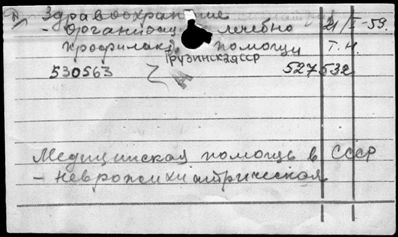 Здравоохранение
- организац лечебно 21/I-59.
профилак. помощи Т.Н.
Грузинская ССР
530563 527532
Медицинская помощь в СССР
- невропсихиатрическая